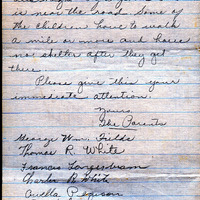 is near the road. Some of
the children have to walk
a mile or more and have
not shelter after they get
there.
Please give this your
immediate attention.
Yours,
The Parents
George Wm. Fields
Thomas R. White
Francis
Charles R. White